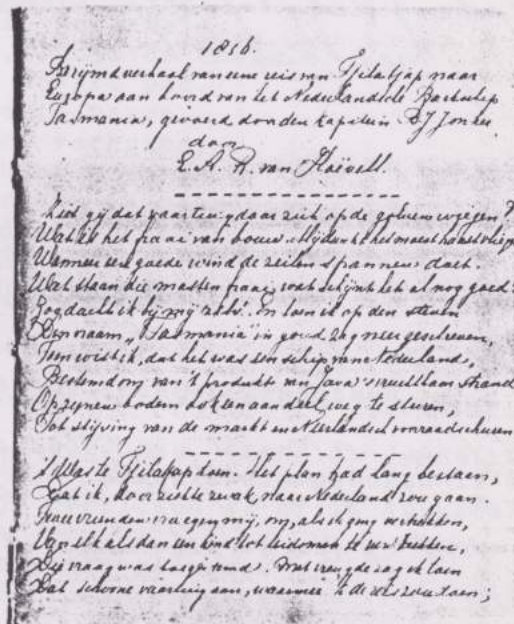 1816.
Berijmd verhaal van eene reis van Tjilatjap naar
Europa aan boord van het Nederlandsche Barkschip
Tasmania, gevoerd door den kapitein B J Jonker
door
E. A. R. van Hoëvell.
Ziet gij dat vaartuig daar zich op de golven wiegen?
Wat is het fraai van bouw. Mij dunkt het moest haast vliegen
Wanneer een goede wind de zeilen spannen doet.
Wat staan die masten fraai, wat schijnt het al nog goed?
Zoo dacht ik bij mij zelv'. En toen ik op den steven
Den naam „Tasmania" in goud zag neergeschreven,
Toen wist ik, dat het was een schip van Nederland,
Bestemd om van 't produkt van Java's strand
Op zijnen bodem ook een aandeel weg te sturen,
Tot stijving van de markt en Neerlandsch voorraadschuren
't Was te Tjilatjap toen. Het plan had lang bestaan,
Dat ik, door ziekte zwak, naar Nederland zou gaan.
Twee vrienden vroegen mij, om, als ik ging vertrekken,
Van elk alsdan een kind tot leidsman te
Die vraag was toegestemd. Met vreugde zag ik toen
Dat schoone vaartuig aan, waarmee 'k de reis zou doen;